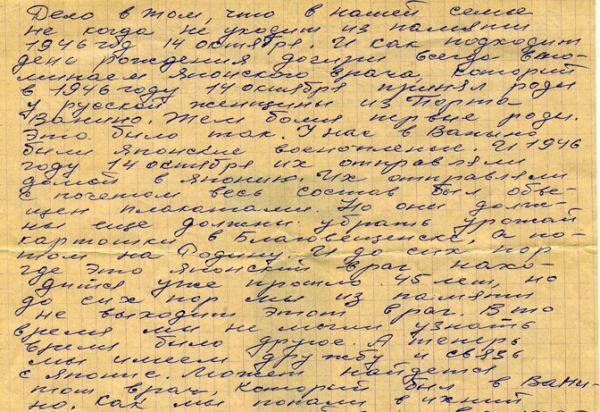 Дело в том, что в нашей семье
не когда не уходит из памяти
1946 год 14 октября. И как подходит
день рождения дочери всегда вспо-
минаем японского врача, который
в 1946 году 14 октября принял роды
у русской женщины из Порта
Ванино. Тем более первые роды.
Это было так. У нас в Ванино
были японские военопленые. И 1946
году 14 октября их отправляли
домой в Японию. Их отправляли
с почетом весь состав был обве-
щен плакатами. Но они долж-
ны еще должны убрать урожай
картошки в Благовещенске, а по-
том на Родину. И до сих пор
где это японский врач нахо-
дится уже прошло 45 лет, но
до сих пор мы из памяти
не выходит этот врач. В то
время мы не могли узнать
время было другое. А теперь
мы имеем дружбу и связь
с Японие. Может найдется
тот врач, который был в Вани-
но. Как мы попали в ихний